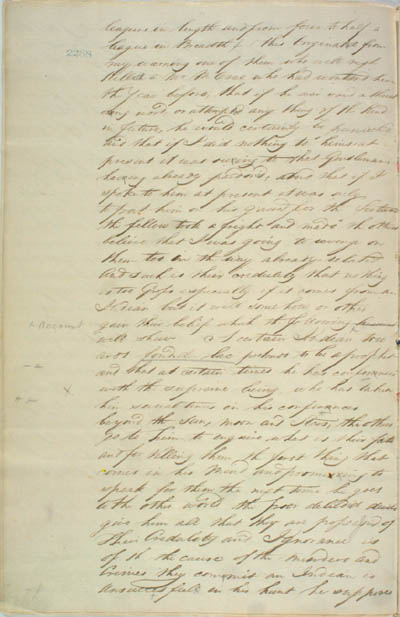 leagues in length and from four to half a
league in Breadth. This Originated from
my warning one of them who with
a Mr. who had wintered here
the Year before, that if he ever used a threat
ning word or attempted any thing of the kind
in future, he would certainly be
this that if I said nothing to him at
present it was owing to that Gentleman
having already pardoned, also that if I
spoke to him at present it was only
to put him on his guard for the future
the fellow took a fright and made the others
believe that I was going to revenge on
them too in the way already related
And such is their credulity that nothing
is too Gross especially if it comes from an
Indean but it will some how or other
gain their belief which the following
+ Account
will shew A certain Indean
pretends to be a prophet
and that at certain times he has conferences
with the supreme being who has taken
him several times in his conferences
beyond the Sun, moon and Stars, the others
go to him to enquire what is their fate
and for telling them the first thing that
comes in his mind and promising to
speak for them the next time he goes
to the other world the poor deluded devils
give him all that they are possessed of
Their Credulity and Ignorance is
of the cause of the murders and
Crimes they commit an Indean is
in his hunt he supposes
2288